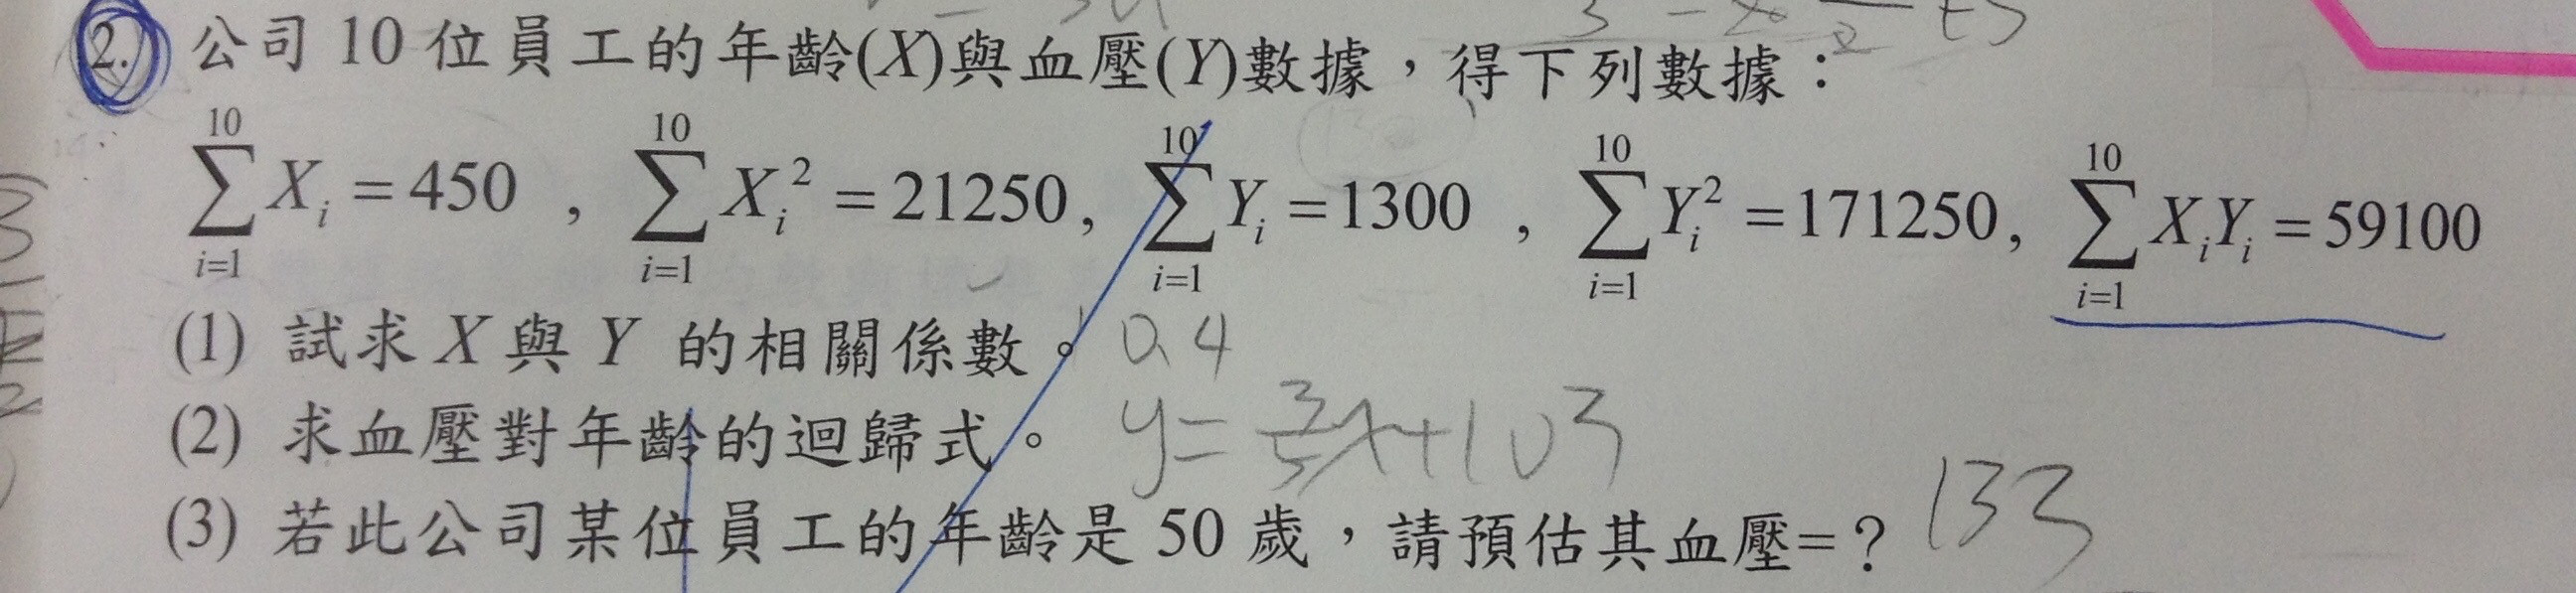 2. 公司 10 位員工的年齡(X)與血壓(Y)數據，得下列數據：
\sum_{i=1}^{10} X_i = 450 ， \sum_{i=1}^{10} X_i^2 = 21250 , \sum_{i=1}^{10} Y_i = 1300 ， \sum_{i=1}^{10} Y_i^2 = 171250 , \sum_{i=1}^{10} X_i Y_i = 59100
(1) 試求 X 與 Y 的相關係數。 0.4
(2) 求血壓對年齡的迴歸式。 y = \frac{3}{5}x+103
(3) 若此公司某位員工的年齡是 50 歲，請預估其血壓=？ 133